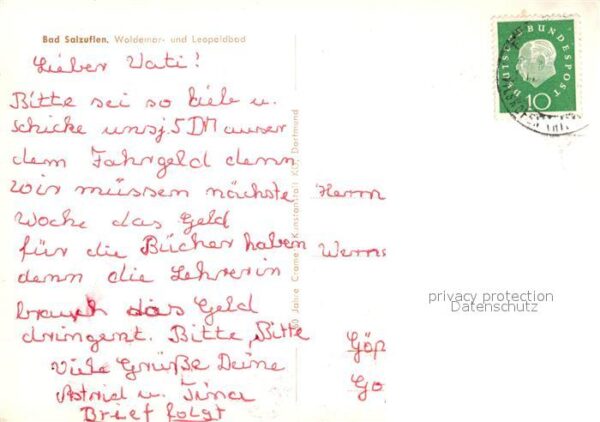 Bad Salzuflen. Woldemar- und Leopoldbad
Lieber Vati!
Bitte sei so lieb u.
schicke uns j. 5 DM auser
dem Fahrgeld denn
wir müssen nächste
Woche das Geld
für die Bücher haben
denn die Lehrerin
brauch das Geld
dringent. Bitte, Bitte
Viele Grüße Deine
Astrid u. Tina
Brief folgt
Jahre Cramers Kunstanstalt KG, Dortmund
DEUTSCHE BUNDESPOST
10
Herrn
Werns
Göp
privacy protection
Datenschutz